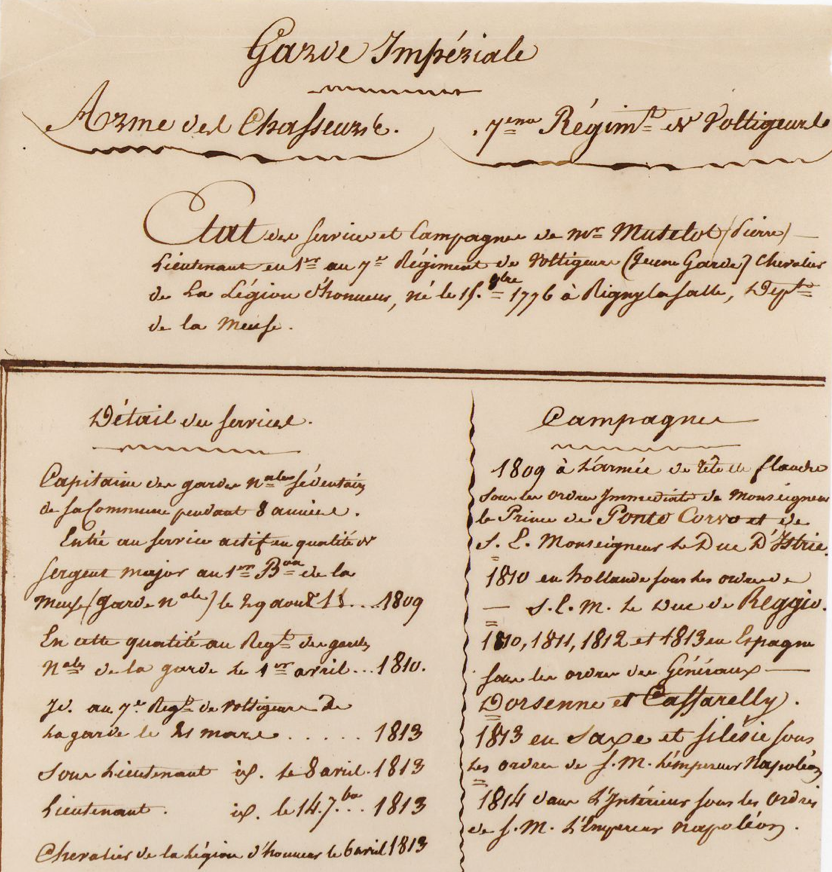 Garde Impériale
Arme des Chasseurs.
7eme Régimt de Voltigeurs
Etat des services et Campagnes de Mr Mutelot (Pierre)
Lieutenant en 1er au 7e Régiment de Voltigeurs (jeune Garde) Chevalier
de la Légion d'honneur, né le 15. 9bre 1776 à Rigny la Salle, Dept
de la Meuse.
Détail des services.
Capitaine des gardes Nales sédentaires
de sa Commune pendant 8 années.
Entré au service actif en qualité de
sergent major au 1er Bon de la
Meuse (garde Nale) le 29 août ... 1809
En cette qualité au Regt des gardes
Nales de la garde le 1er avril ... 1810.
Id. au 7e Regt de Voltigeurs de
la garde le 21 mars ...... 1813
Sous Lieutenant id. le 8 avril. 1813
Lieutenant. id. le 14. 7bre ... 1813
Chevalier de la Légion d'honneur le 6 avril 1813
Campagnes
1809 à l'armée de de flandre
sous les ordres immédiats de Monseigneur
le Prince de Ponto Corvo et de
S. E. Monseigneur le Duc D'Istrie.
1810 en hollande sous les ordres de
— S. E. M. le Duc de Reggio.
1810, 1811, 1812 et 1813 en Espagne
sous les ordres des Généraux —
Dorsenne et Caffarelly.
1813 en Saxe et Silésie sous
les ordres de S. M. l'empereur Napoléon
1814 dans l'Intérieur sous les ordres
de S. M. l'Empereur napoléon.